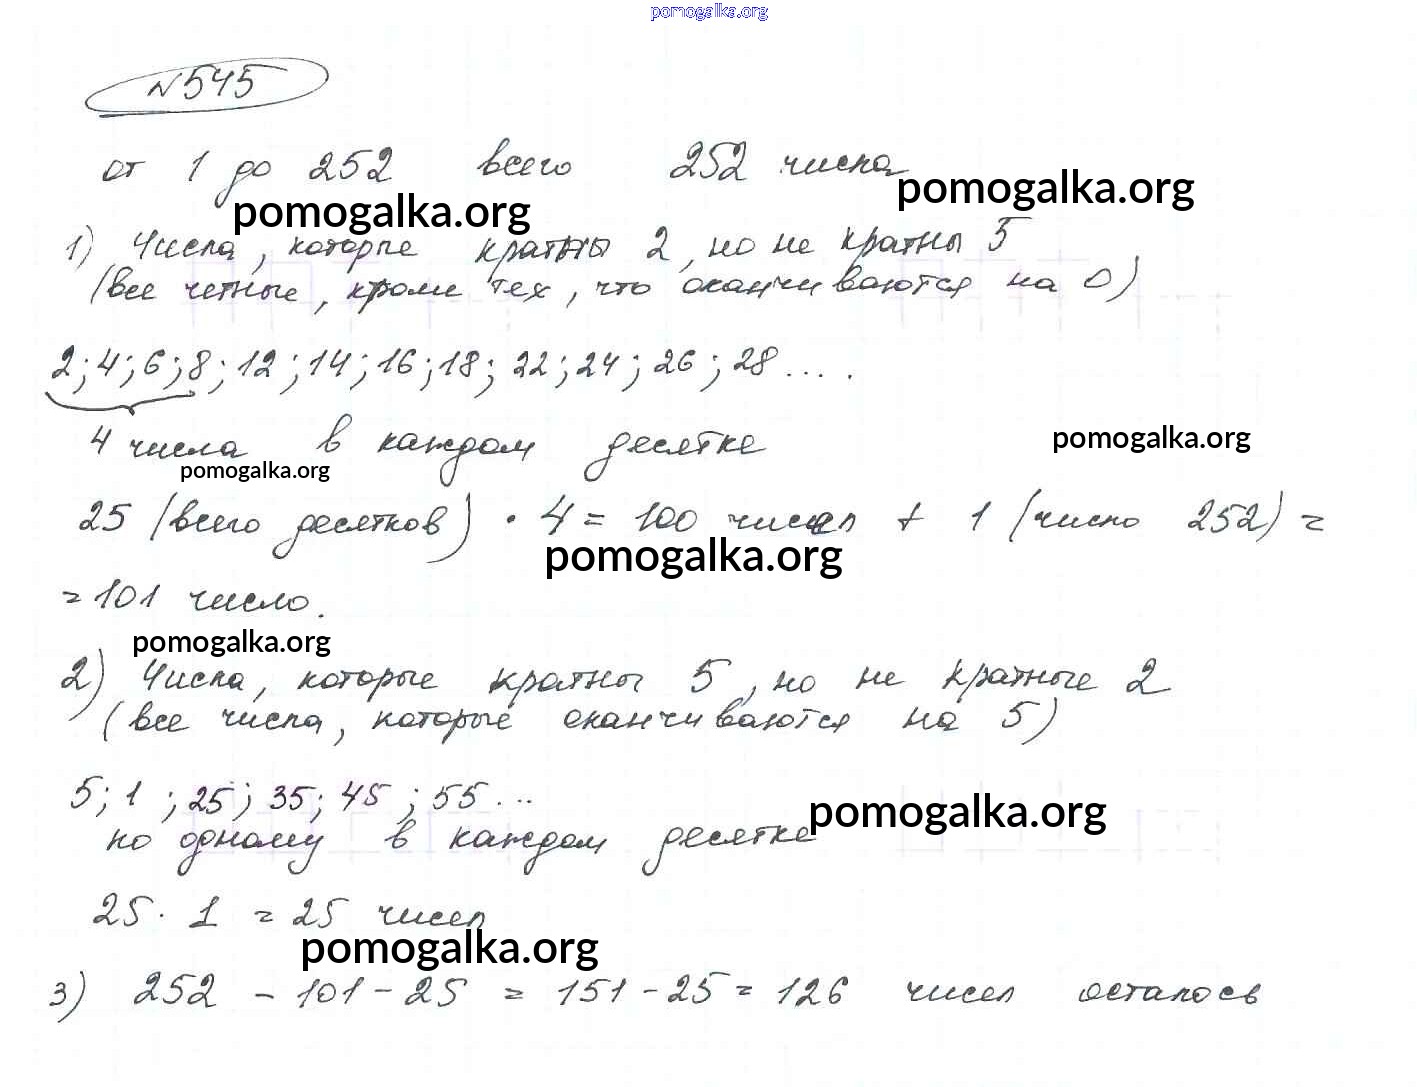 pomogalka.org
№545
от 1 до 252 всего 252 числа
pomogalka.org pomogalka.org
1) Числа, которые кратны 2, но не кратны 5
(все четные, кроме тех, что оканчиваются на 0)
2; 4; 6; 8; 12; 14; 16; 18; 22; 24; 26; 28 ... .
4 числа в каждом десятке
pomogalka.org pomogalka.org
25 (всего десятков) · 4 = 100 чисел + 1 (число 252) =
pomogalka.org
= 101 число.
pomogalka.org
2) Числа, которые кратны 5, но не кратные 2
(все числа, которые оканчиваются на 5)
5; 1 ; 25; 35; 45 ; 55 ...
pomogalka.org
по одному в каждом десятке
25 · 1 = 25 чисел
pomogalka.org
3) 252 - 101 - 25 = 151 - 25 = 126 чисел осталось